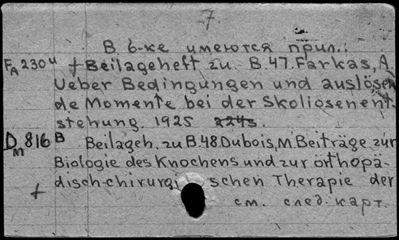 7
В б-ке имеются прил.:
FA 230 u + Beilageheft zu B. 47. Farkas, A.
Ueber Bedingungen und auslösen
de Momente bei der Skoliosenent-
stehung. 1925
DM 816 B Beilageh. zu B. 48. Dubois, M. Beiträge zur
Biologie des Knochens und zur orthopä-
+ disch-chirurgischen Therapie der
см. след. карт.